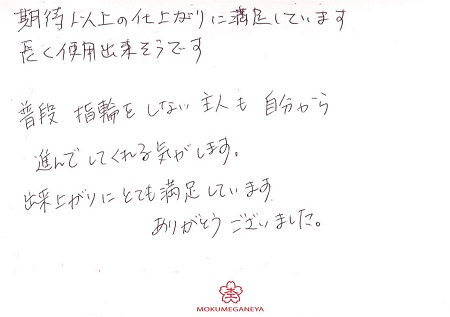 期待以上の仕上がりに満足しています
長く使用出来そうです
普段 指輪をしない主人も 自分から
進んでしてくれる気がします。
出来上がりにとても満足しています
ありがとう ございました。
MOKUMEGANEYA